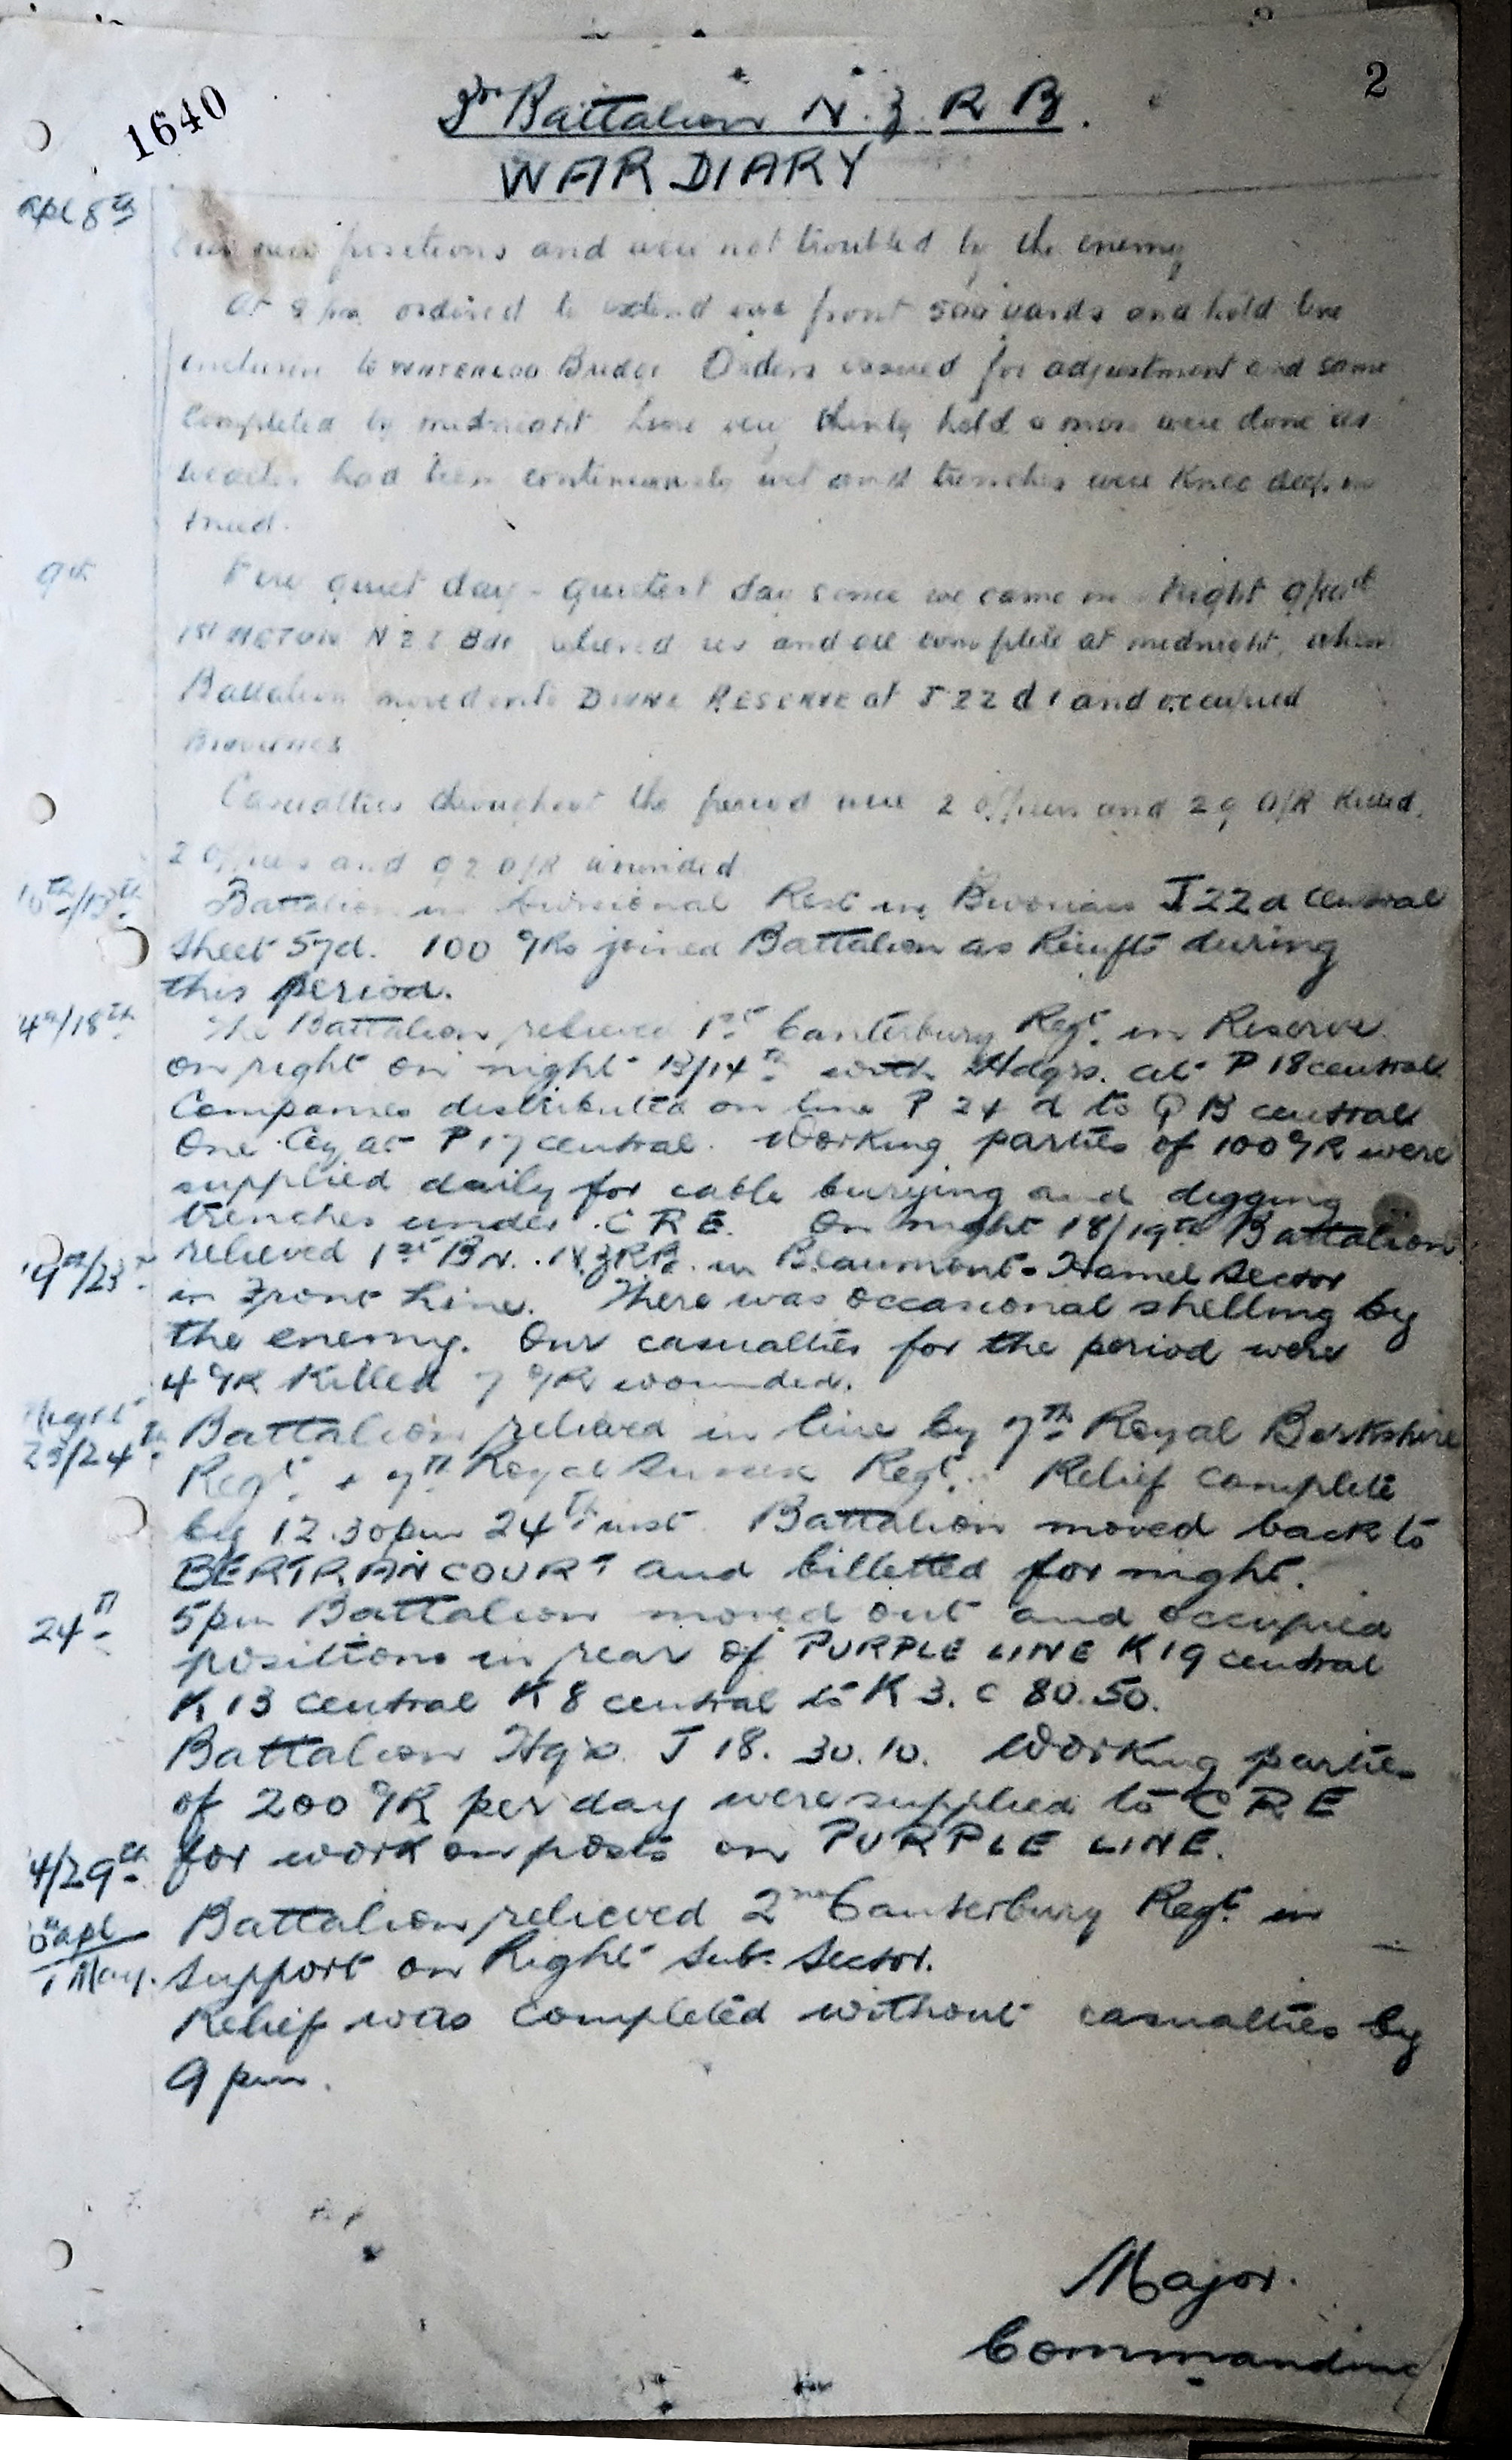 1640
2
3rd Battalion N.Z.R.B.
WAR DIARY
Apl 8th
our new positions and were not troubled by the enemy
At 8 pm ordered to extend our front 500 yards and hold line
inclusive to WATERLOO Bridge Orders issued for adjustment and same
completed by midnight. Line very thinly held & men were done as
weather had been continuously wet and trenches were knee deep in
mud.
9th
Fine quiet day - quietest day since we came in. Night 9/10th
1st N Z I Bde relieved us and all complete at midnight, when
Battalion moved into RESERVE at J 22 d 1 and occupied
Bivouacs
Casualties throughout the period were 2 officers and 29 O/R killed,
2 officers and 92 O/R wounded
10th/13th
Battalion in Divisional Rest in Bivouacs J22d central
Sheet 57d. 100 O/Rs joined Battalion as Reinfts during
this period.
4th/18th
The Battalion relieved 1st Canterbury Regt. in Reserve
on right on night 13/14th with Hdqrs. at P 18 central
Companies distributed on line P 24 d to Q 13 central
One Coy at P 17 central. Working parties of 100 O/R were
supplied daily for cable burying and digging
trenches under C R E. On night 18/19th Battalion
19th/23
relieved 1st BN. NZRB. in Beaumont-Hamel Sector
in Front Line. There was occasional shelling by
the enemy. Our casualties for the period were
4 O/R Killed 7 O/R wounded.
Night
23/24th
Battalion relieved in line by 7th Royal Berkshire
Regt. + 7th Royal Sussex Regt. Relief complete
by 12.30pm 24th inst. Battalion moved back to
BERTRANCOURT and billetted for night.
24th
5pm Battalion moved out and occupied
positions in rear of PURPLE LINE K19 central
K 13 central K 8 central to K 3. c 80.50.
Battalion Hqrs. J 18. 30.10. Working parties
of 200 O/R per day were supplied to C R E
4/29th
for work on posts on PURPLE LINE.
Apl
1 May.
Battalion relieved 2nd Canterbury Regt. in
Support on Right Sub. Sector.
Relief was completed without casualties by
9 pm.
Major.
Commanding